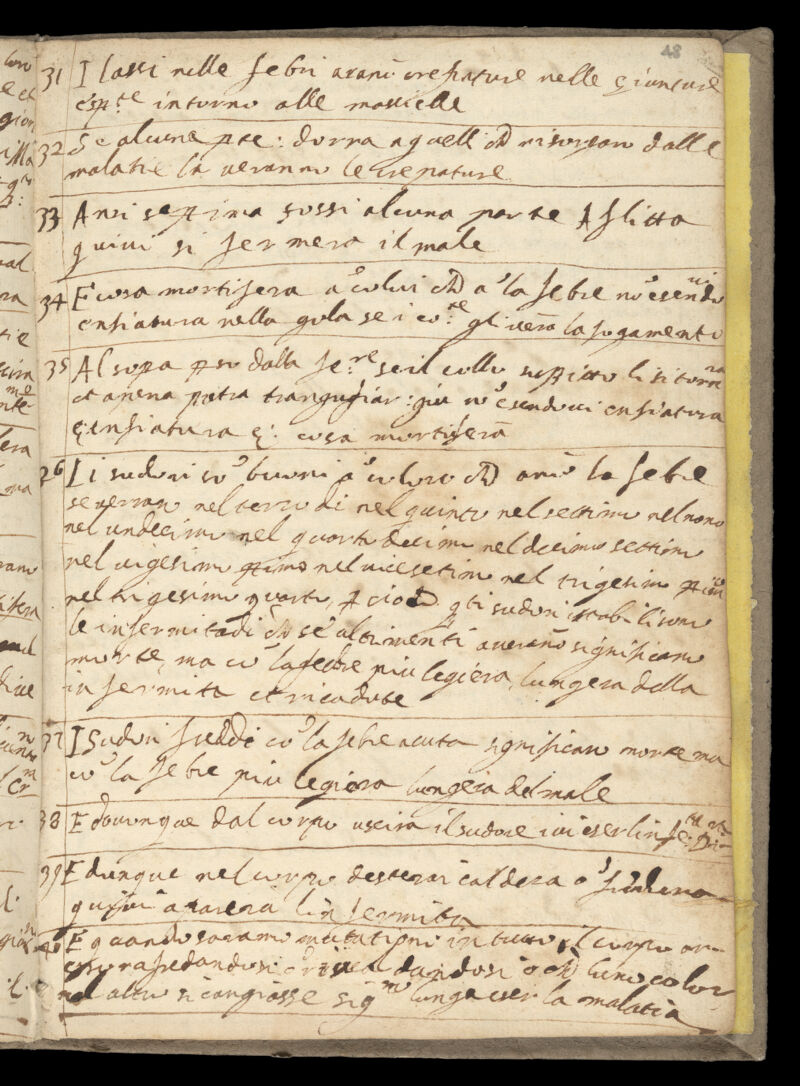 48
31 I lassi nelle febri arānō crepature nelle giunture
e sp.te intorno alle mascelle
32 Se alcuna pte: dorrà a quelli chē risorgano dalle
malatie la verannō le crepature
33 Anzi se prima fossi alcuna parte Aflitta
quivi si fermera il male
34 E cosa mortifera a colui chē a la febre nō esendovi
enfiatura nella gola se i co.re gli verā la sogamento
35 Al sopa pso dalla fe.re se il collo subitto li si torna
et apena potra trangugiar: giu nō esendovi enfiatura
enfiatura e: cosa mortifera
36 Li sudori sō buoni a coloro chē anō la febre
se verran nel terzo di nel quinto nel settimo nel nono
nel undecimo nel quarto decimo nel decimo settimo
nel vigesimo pimo nel vicesetimo nel trigesimo pimo
nel trigesimo quarto, p cio chē qti sudori
le infermitadi chē se altrimenti averanō significano
morte, ma cō la febre piu legiera lungeza della
infermita et ricadute
37 I Sudori freddi cō la febre acuta significano morte ma
cō la febre piu legiera lungeza del male
38 E dovunque dal corpo uscira il sudore ivi eser linfe.tà
39 E dunque nel corpo desserai caldeza o fredeza
quivi aparera linfermita
40 E quando sarano mutationi in tutto il corpo or
dandosi o chē luno color
nel altro si cangiasse sig.no lunga eser la malatia